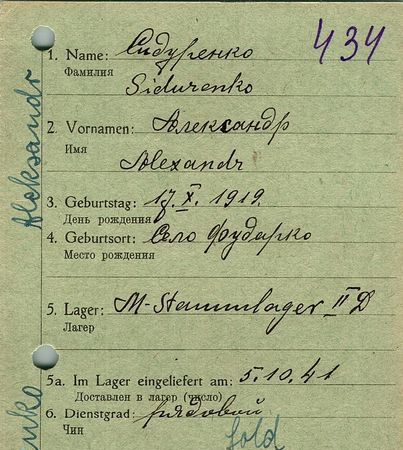 434
1. Name: Сидуренко
Фамилия
Sidurenko
2. Vornamen: Александр
Имя
Alexandr
3. Geburtstag: 17. X. 1919.
День рождения
4. Geburtsort: Село Фударко
Место рождения
5. Lager: M-Stammlager II D
Лагер
5a. Im Lager eingeliefert am: 5.10.41
Доставлен в лагер (число)
6. Dienstgrad: рядовой
Чин
Sold
Aleksandr
nko